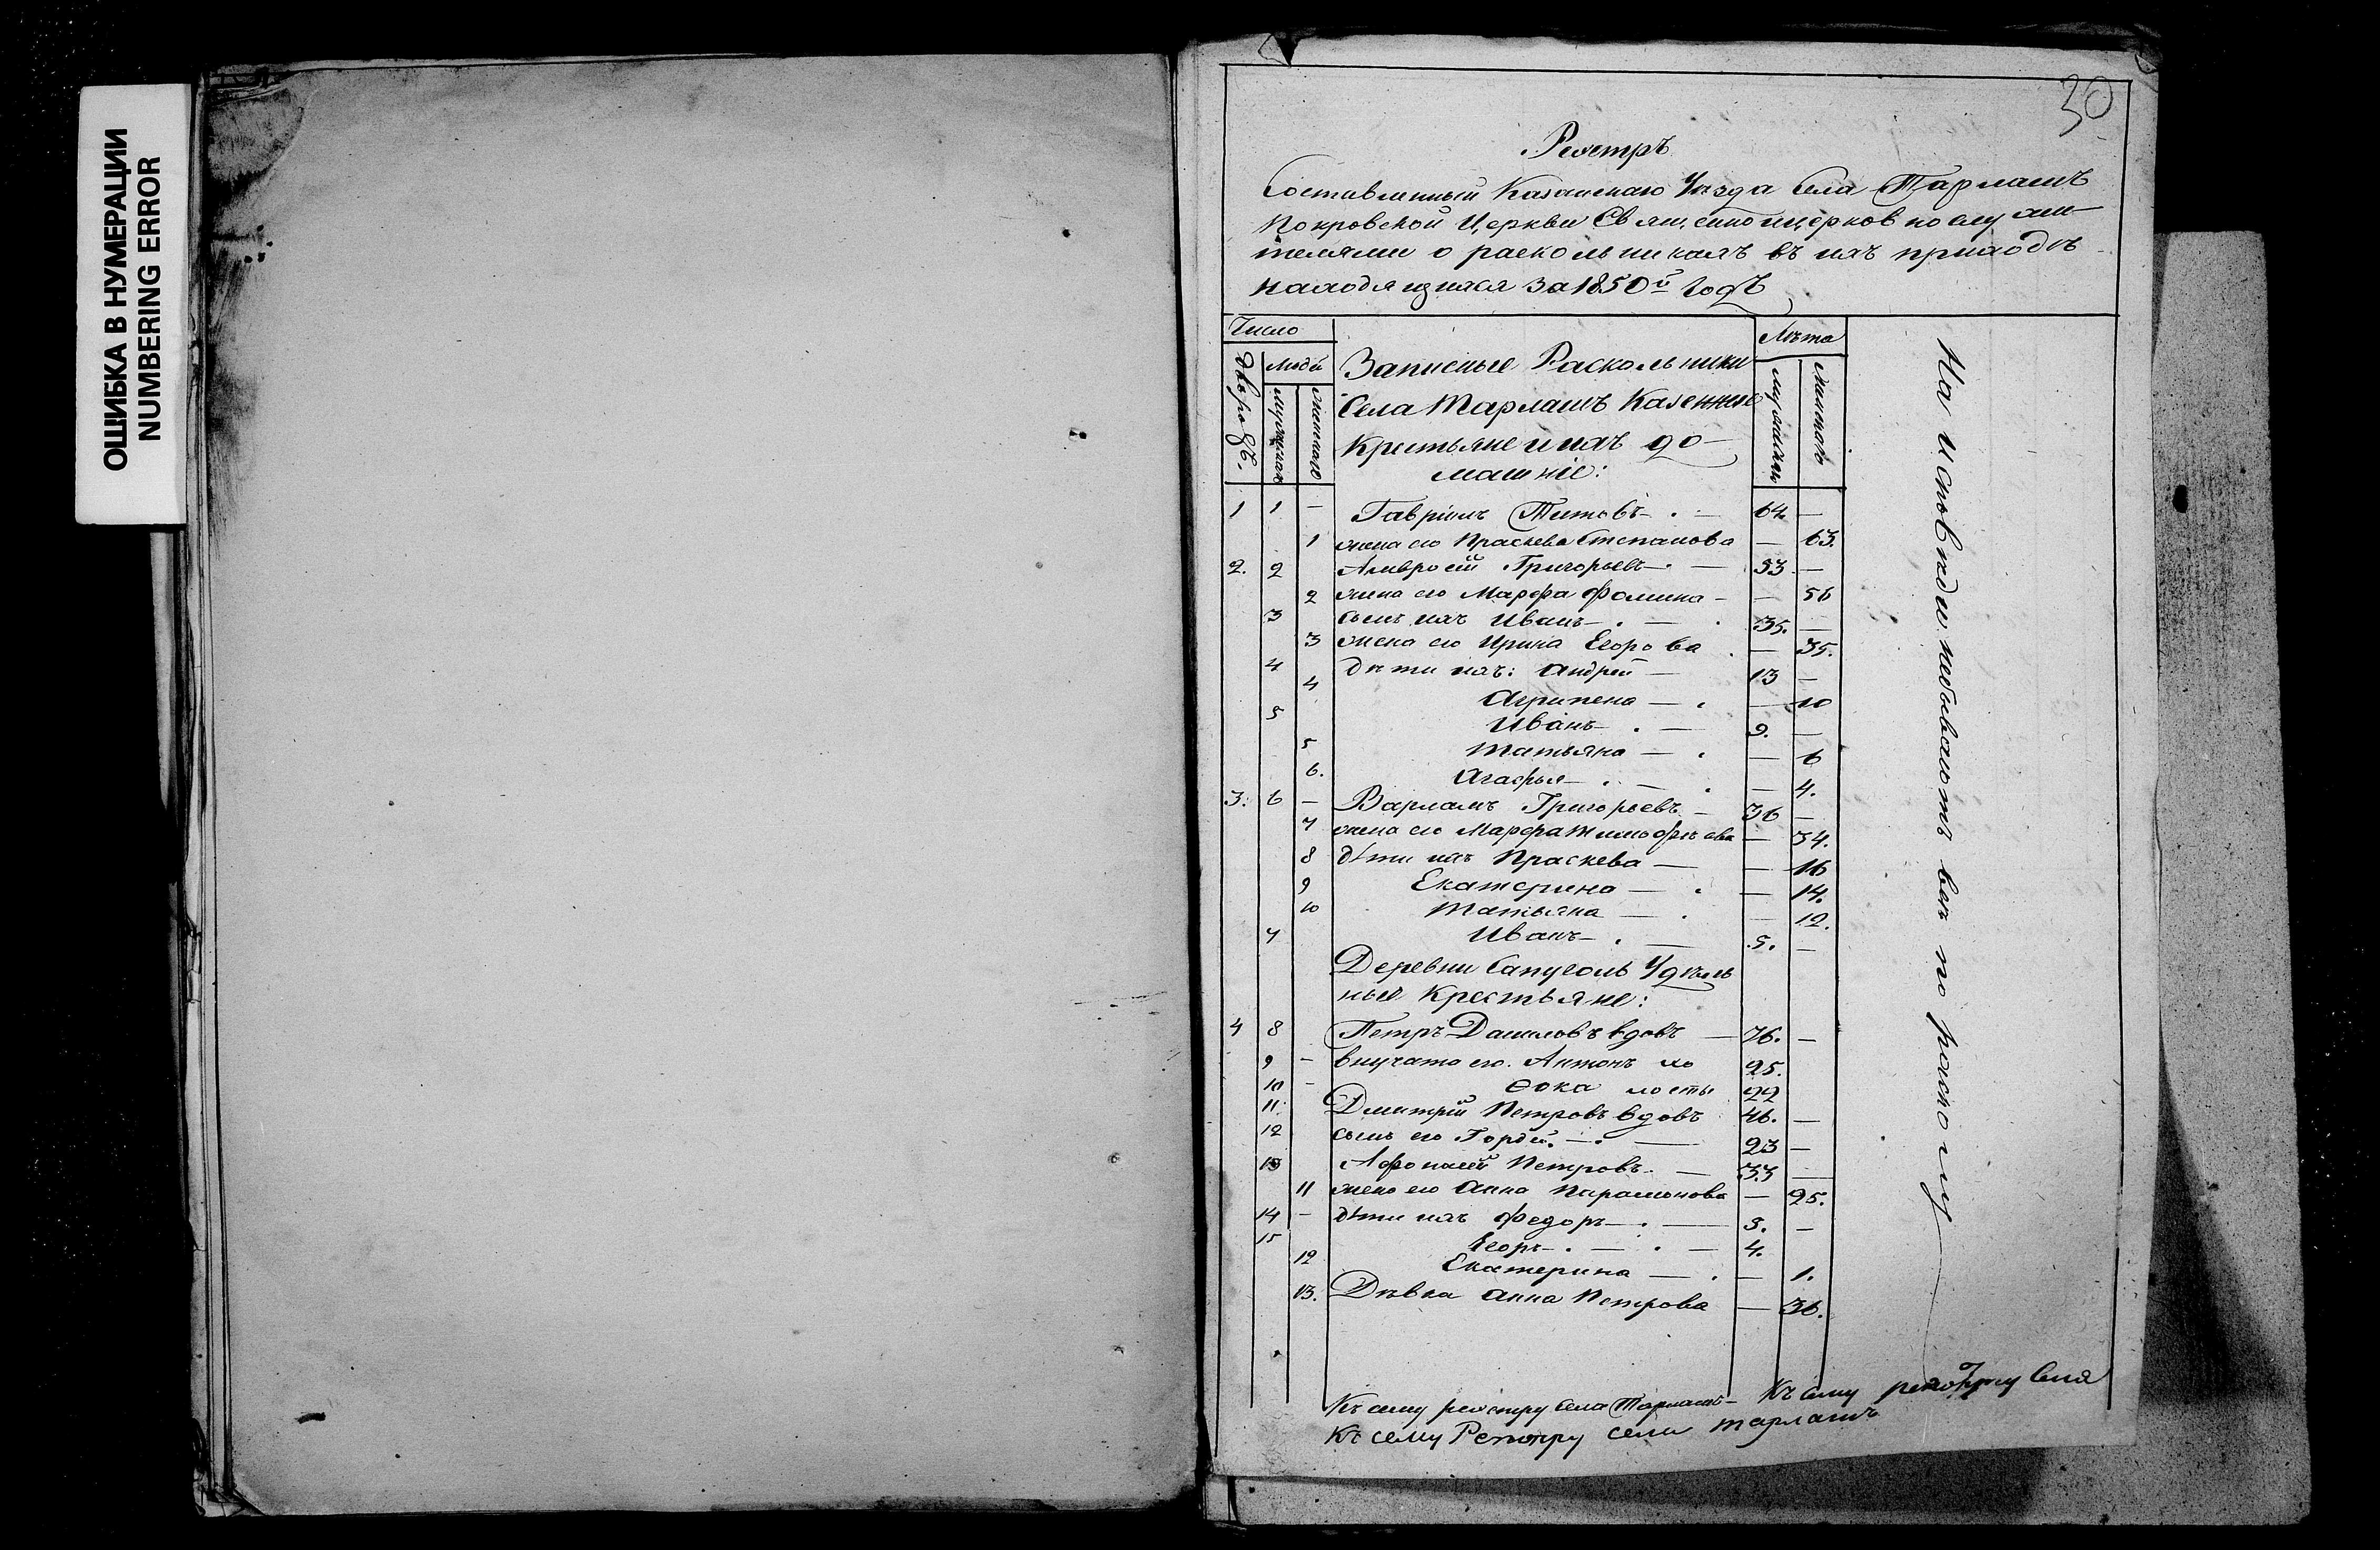 ОШИБКА В НУМЕРАЦИИ
NUMBERING ERROR
30
Реестръ
Составленный Казанскаго Уѣзда Села Тарлашъ
Покровской Церкви Священноцерковнослужи-
телями о раскольникахъ въ ихъ приходѣ
находящихся за 1850й годъ
Число
Лѣта
Дворовъ.
Людей
мужеска
женска
Записные Раскольники
Села Тарлашъ Казенные
Крестьяне и ихъ до-
машніе:
На исповѣди небываютъ по расколу
1 1 — Гавріилъ Титовъ — 64. —
1 жена его Праскева Степанова — 63.
2. 2 Амвросій Григорьевъ — 53 —
2 жена его Марфа Фомина — 56
3 сынъ ихъ Иванъ — 35. —
3 жена его Ирина Егорова — 35.
4 дѣти ихъ: Андрей — 13 —
4 Агрипена — 10
5 Иванъ — 9. —
5 Татьяна — 6
6. Агафья — 4.
3. 6 — Варламъ Григорьевъ — 36 —
7 жена его Марфа Тимофѣева — 34.
8 дѣти ихъ Праскева — 16
9 Екатерина — 14.
10 Татьяна — 12.
7 Иванъ — 5. —
Деревни Сапуголь Удѣль
ные Крестьяне:
4 8 Петръ Даниловъ вдовъ — 76. —
9 — внучата его. Антонъ хо 25.
10 — Фока лосты 22
11. Дмитрій Петровъ вдовъ 46. —
12 сынъ его Гордей. — 23 —
13 Афонасій Петровъ — 33 —
11 жена его Анна Парамонова — 25.
14 — дѣти ихъ Федоръ — 5. —
15 Егоръ — 4.
12 Екатерина — 1.
13. Дѣвка Анна Петрова — 36.
Къ сему реестру Села Тарлашъ — Къ сему реестру Села
Къ сему Реэстру села Тарлашъ